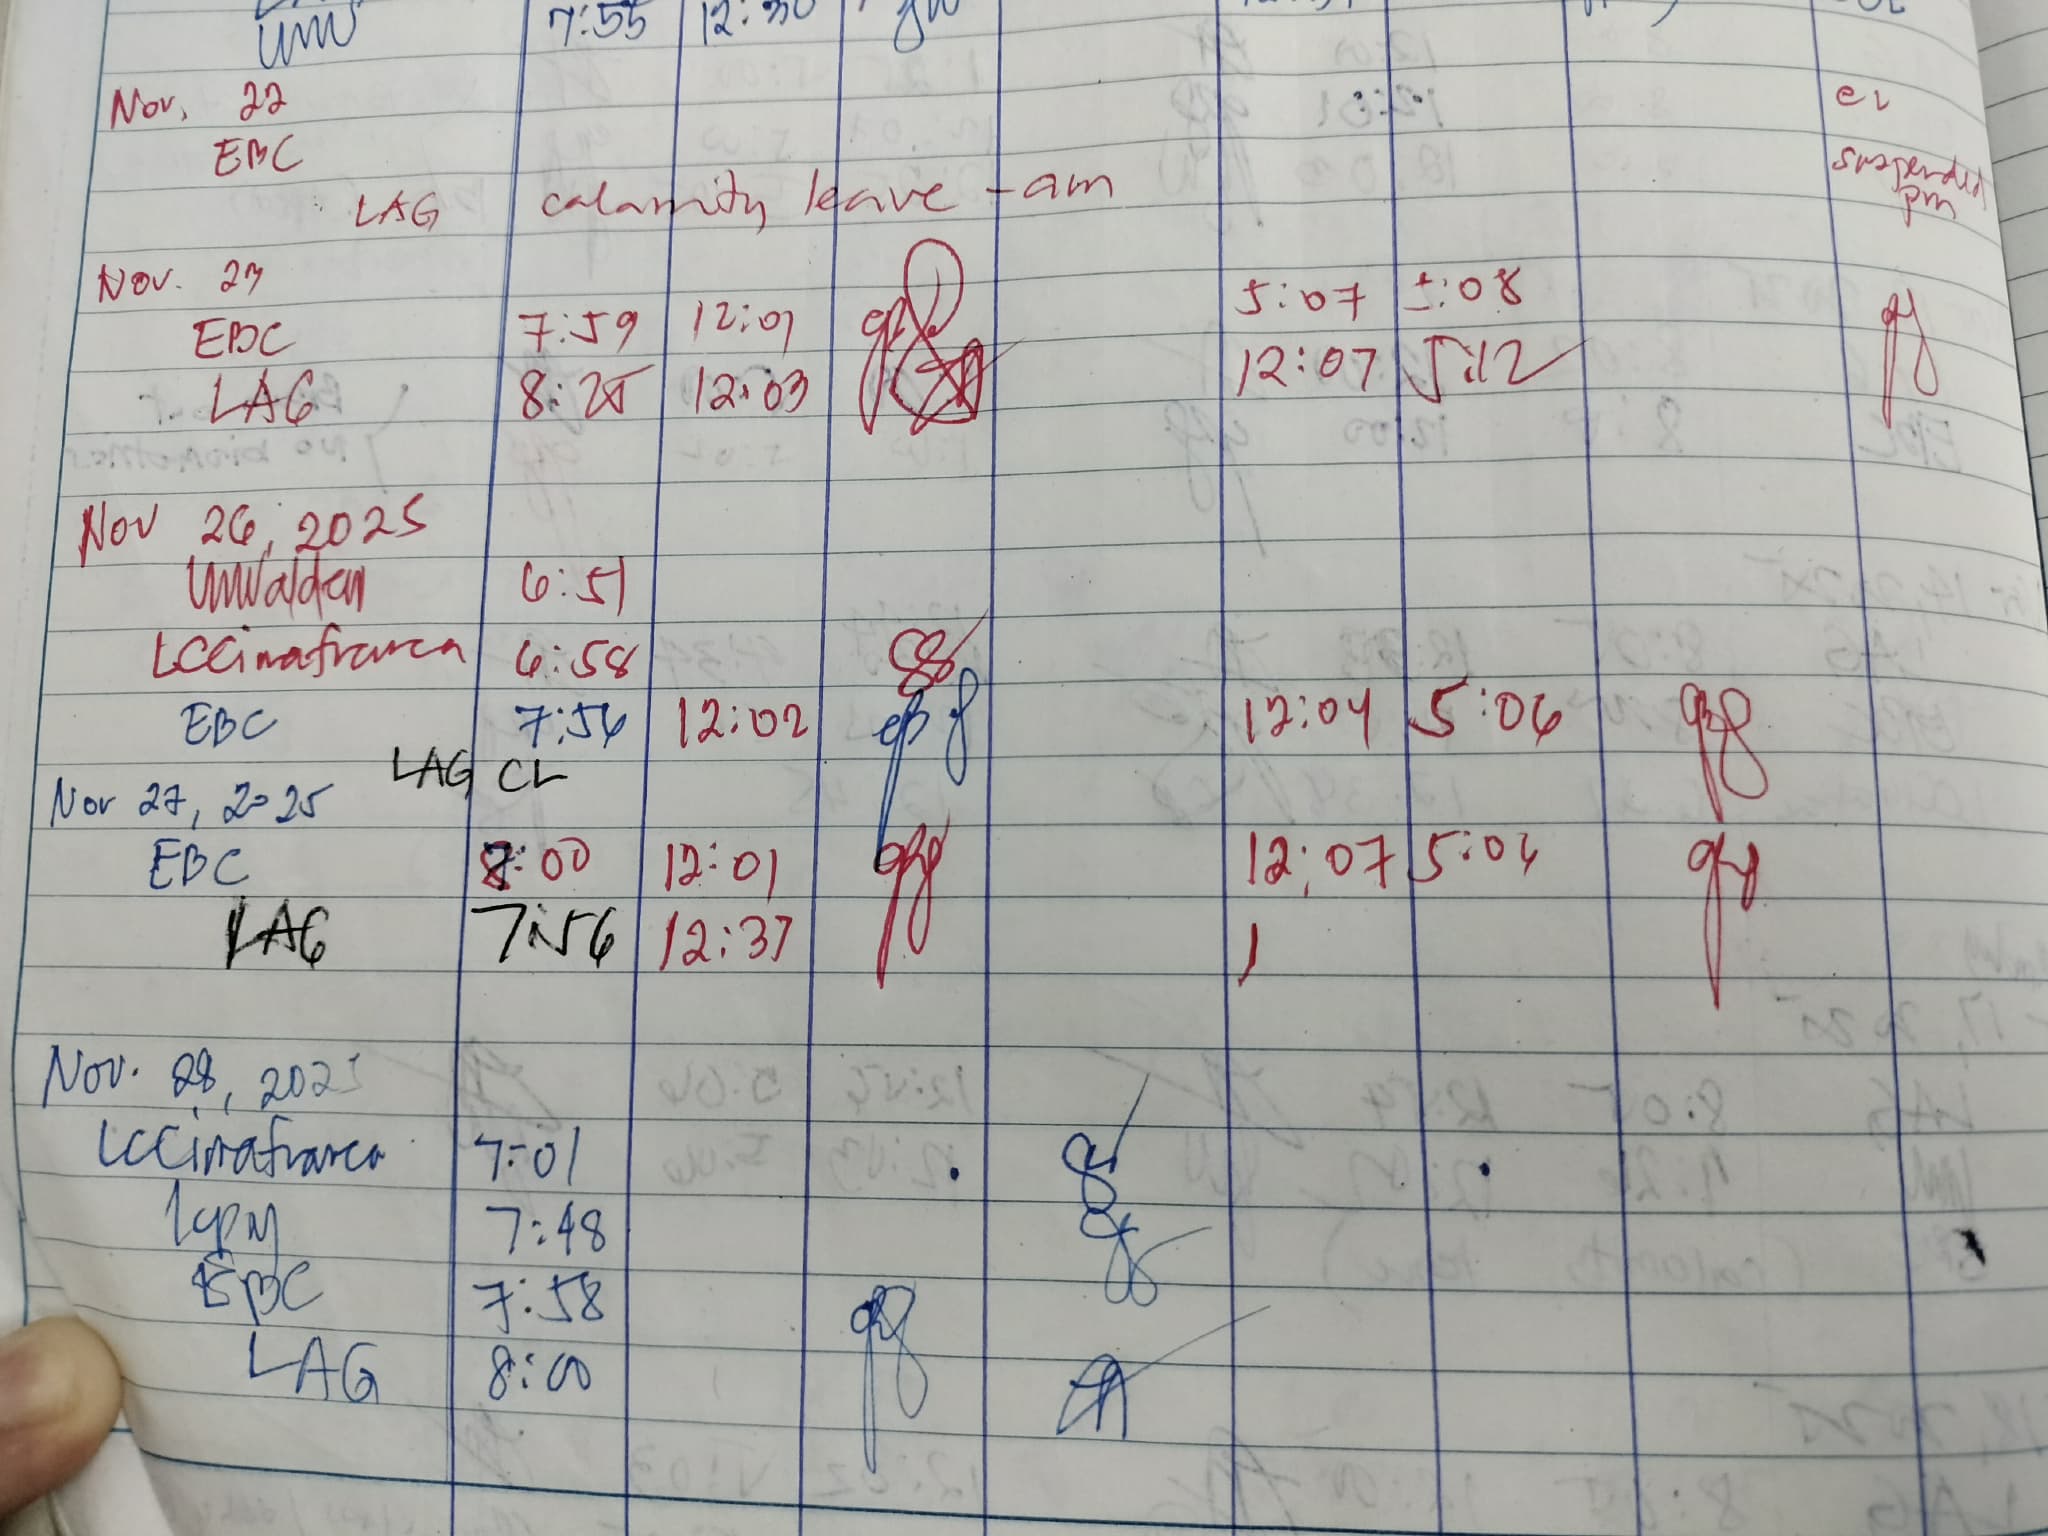 UMV 7:55 12:30
Nov. 22
EBC
LAG calamity leave - am suspended pm
Nov. 23
5:07 5:08
EBC 7:59 12:01
LAG 8:25 12:03 12:07 5:12
Nov 26, 2025
6:51
LCCinafranca 6:58
EBC 7:56 12:02 12:04 5:06
LAG CL
Nov 27, 2025
EBC :00 12:01 12:07 5:04
LAG 7:56 12:37 1
Nov. 28, 2025
LCCinafranca 7:01
7:48
EBC 7:58
LAG 8:00